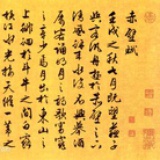 赤壁賦
壬戌之秋七月既望蘇子
與客泛舟遊於赤壁之下
清風徐來水波不興舉酒
屬客誦明月之詩歌窈窕
之章少焉月出於東山之
上徘徊於斗牛之間白露
橫江水光接天縱一葦之